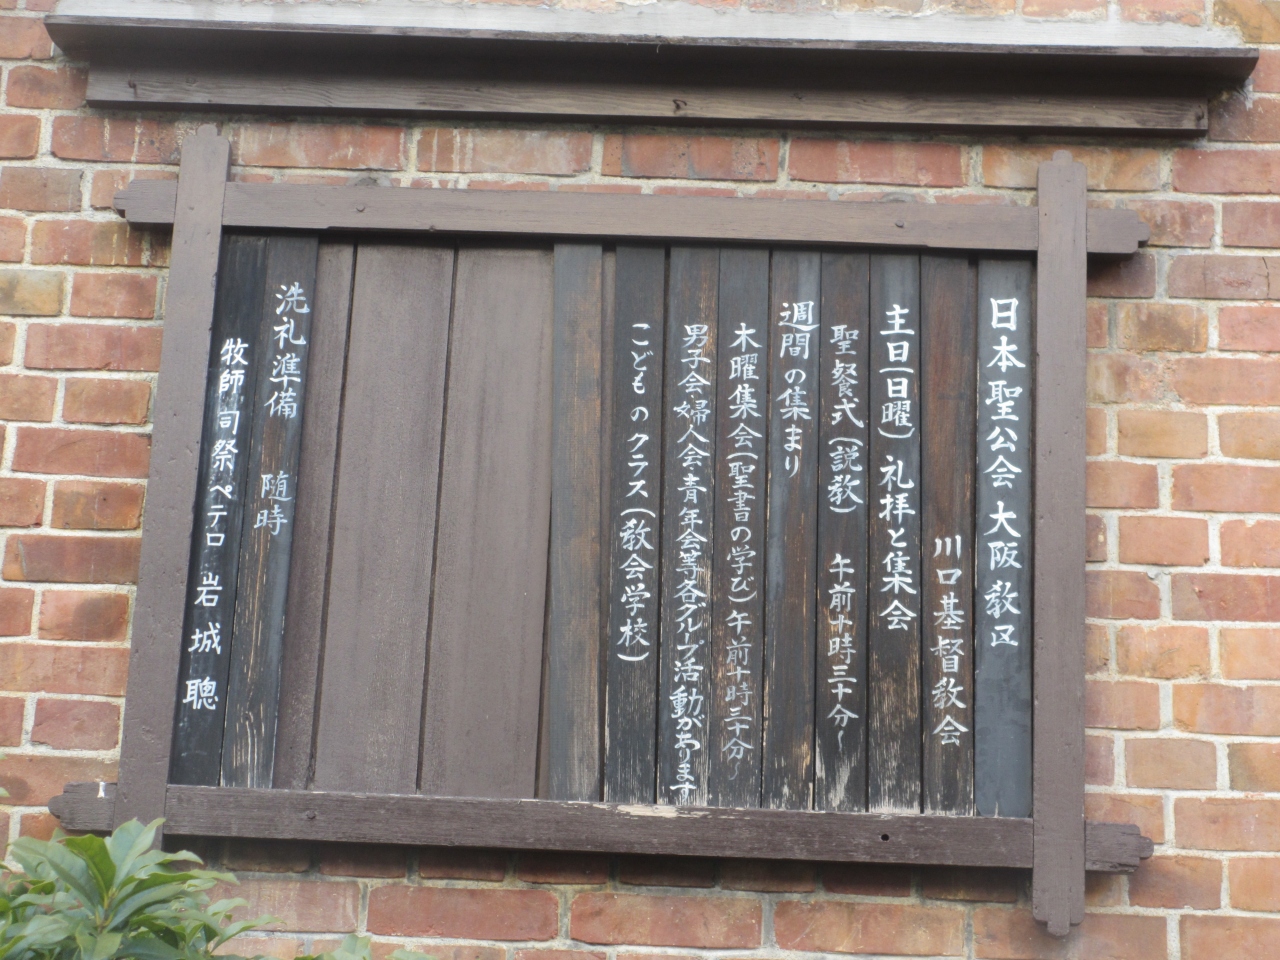 日本聖公会 大阪教区
川口基督教会
主日(日曜) 礼拝と集会
聖餐式(説教) 午前十時三十分~
週間の集まり
木曜集会(聖書の学び)午前十時三十分~
男子会・婦人会・青年会等各グループ活動があります
こどものクラス(教会学校)
洗礼準備 随時
牧師 司祭ペテロ 岩城 聰